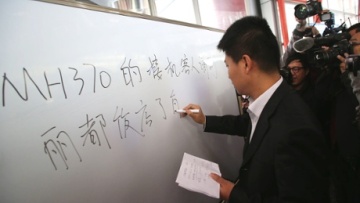 MH370的接机家人
丽都饭店了